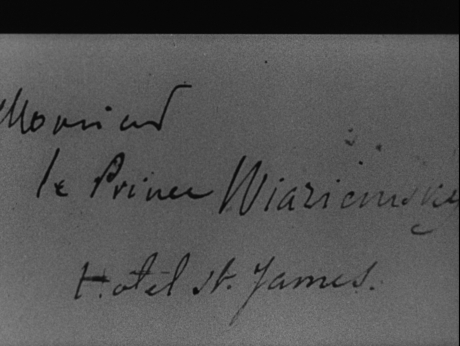 Monsieur
le Prince Wiaziemsky
Hotel St. James.